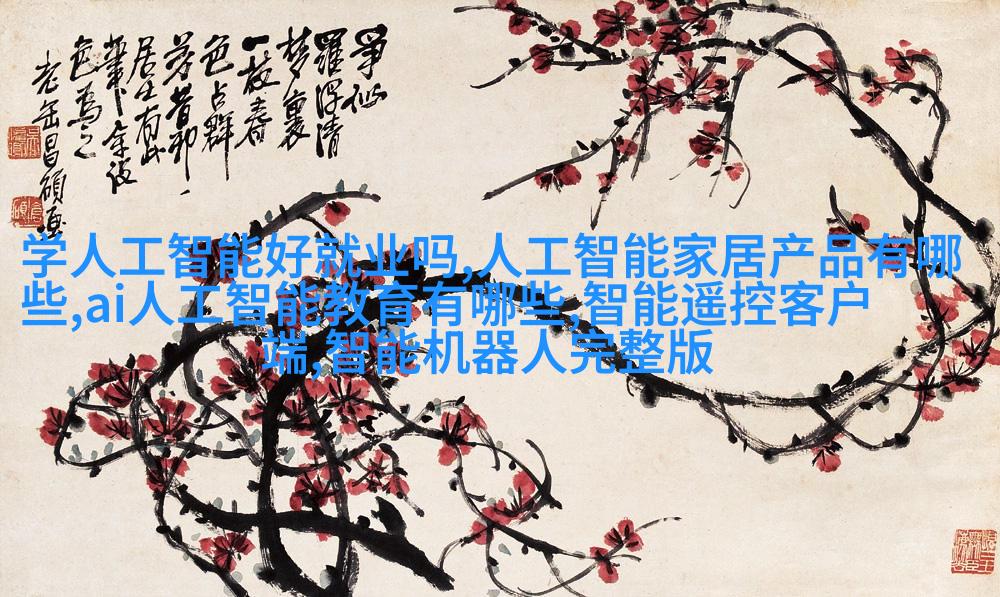 争似
罗浮清
梦里
一枝春
色占群
芳昔邪
居士有此
笔
色为之
老缶昌硕画
学人工智能好就业吗,人工智能家居产品有哪
些,ai人工智能教育有哪些,智能遥控客户
端,智能机器人完整版